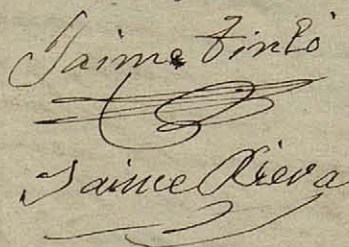 Jaime Tintó
Jaime Riera